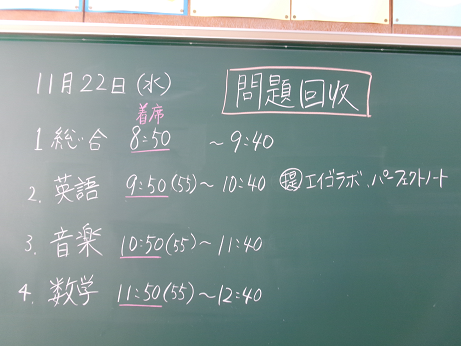 11月22日(水) 問題回収
着席
1 総合 8:50 ~ 9:40
2. 英語 9:50(55)~10:40 提 エイゴラボ、パーフェクトノート
3. 音楽 10:50(55)~11:40
4. 数学 11:50(55)~12:40